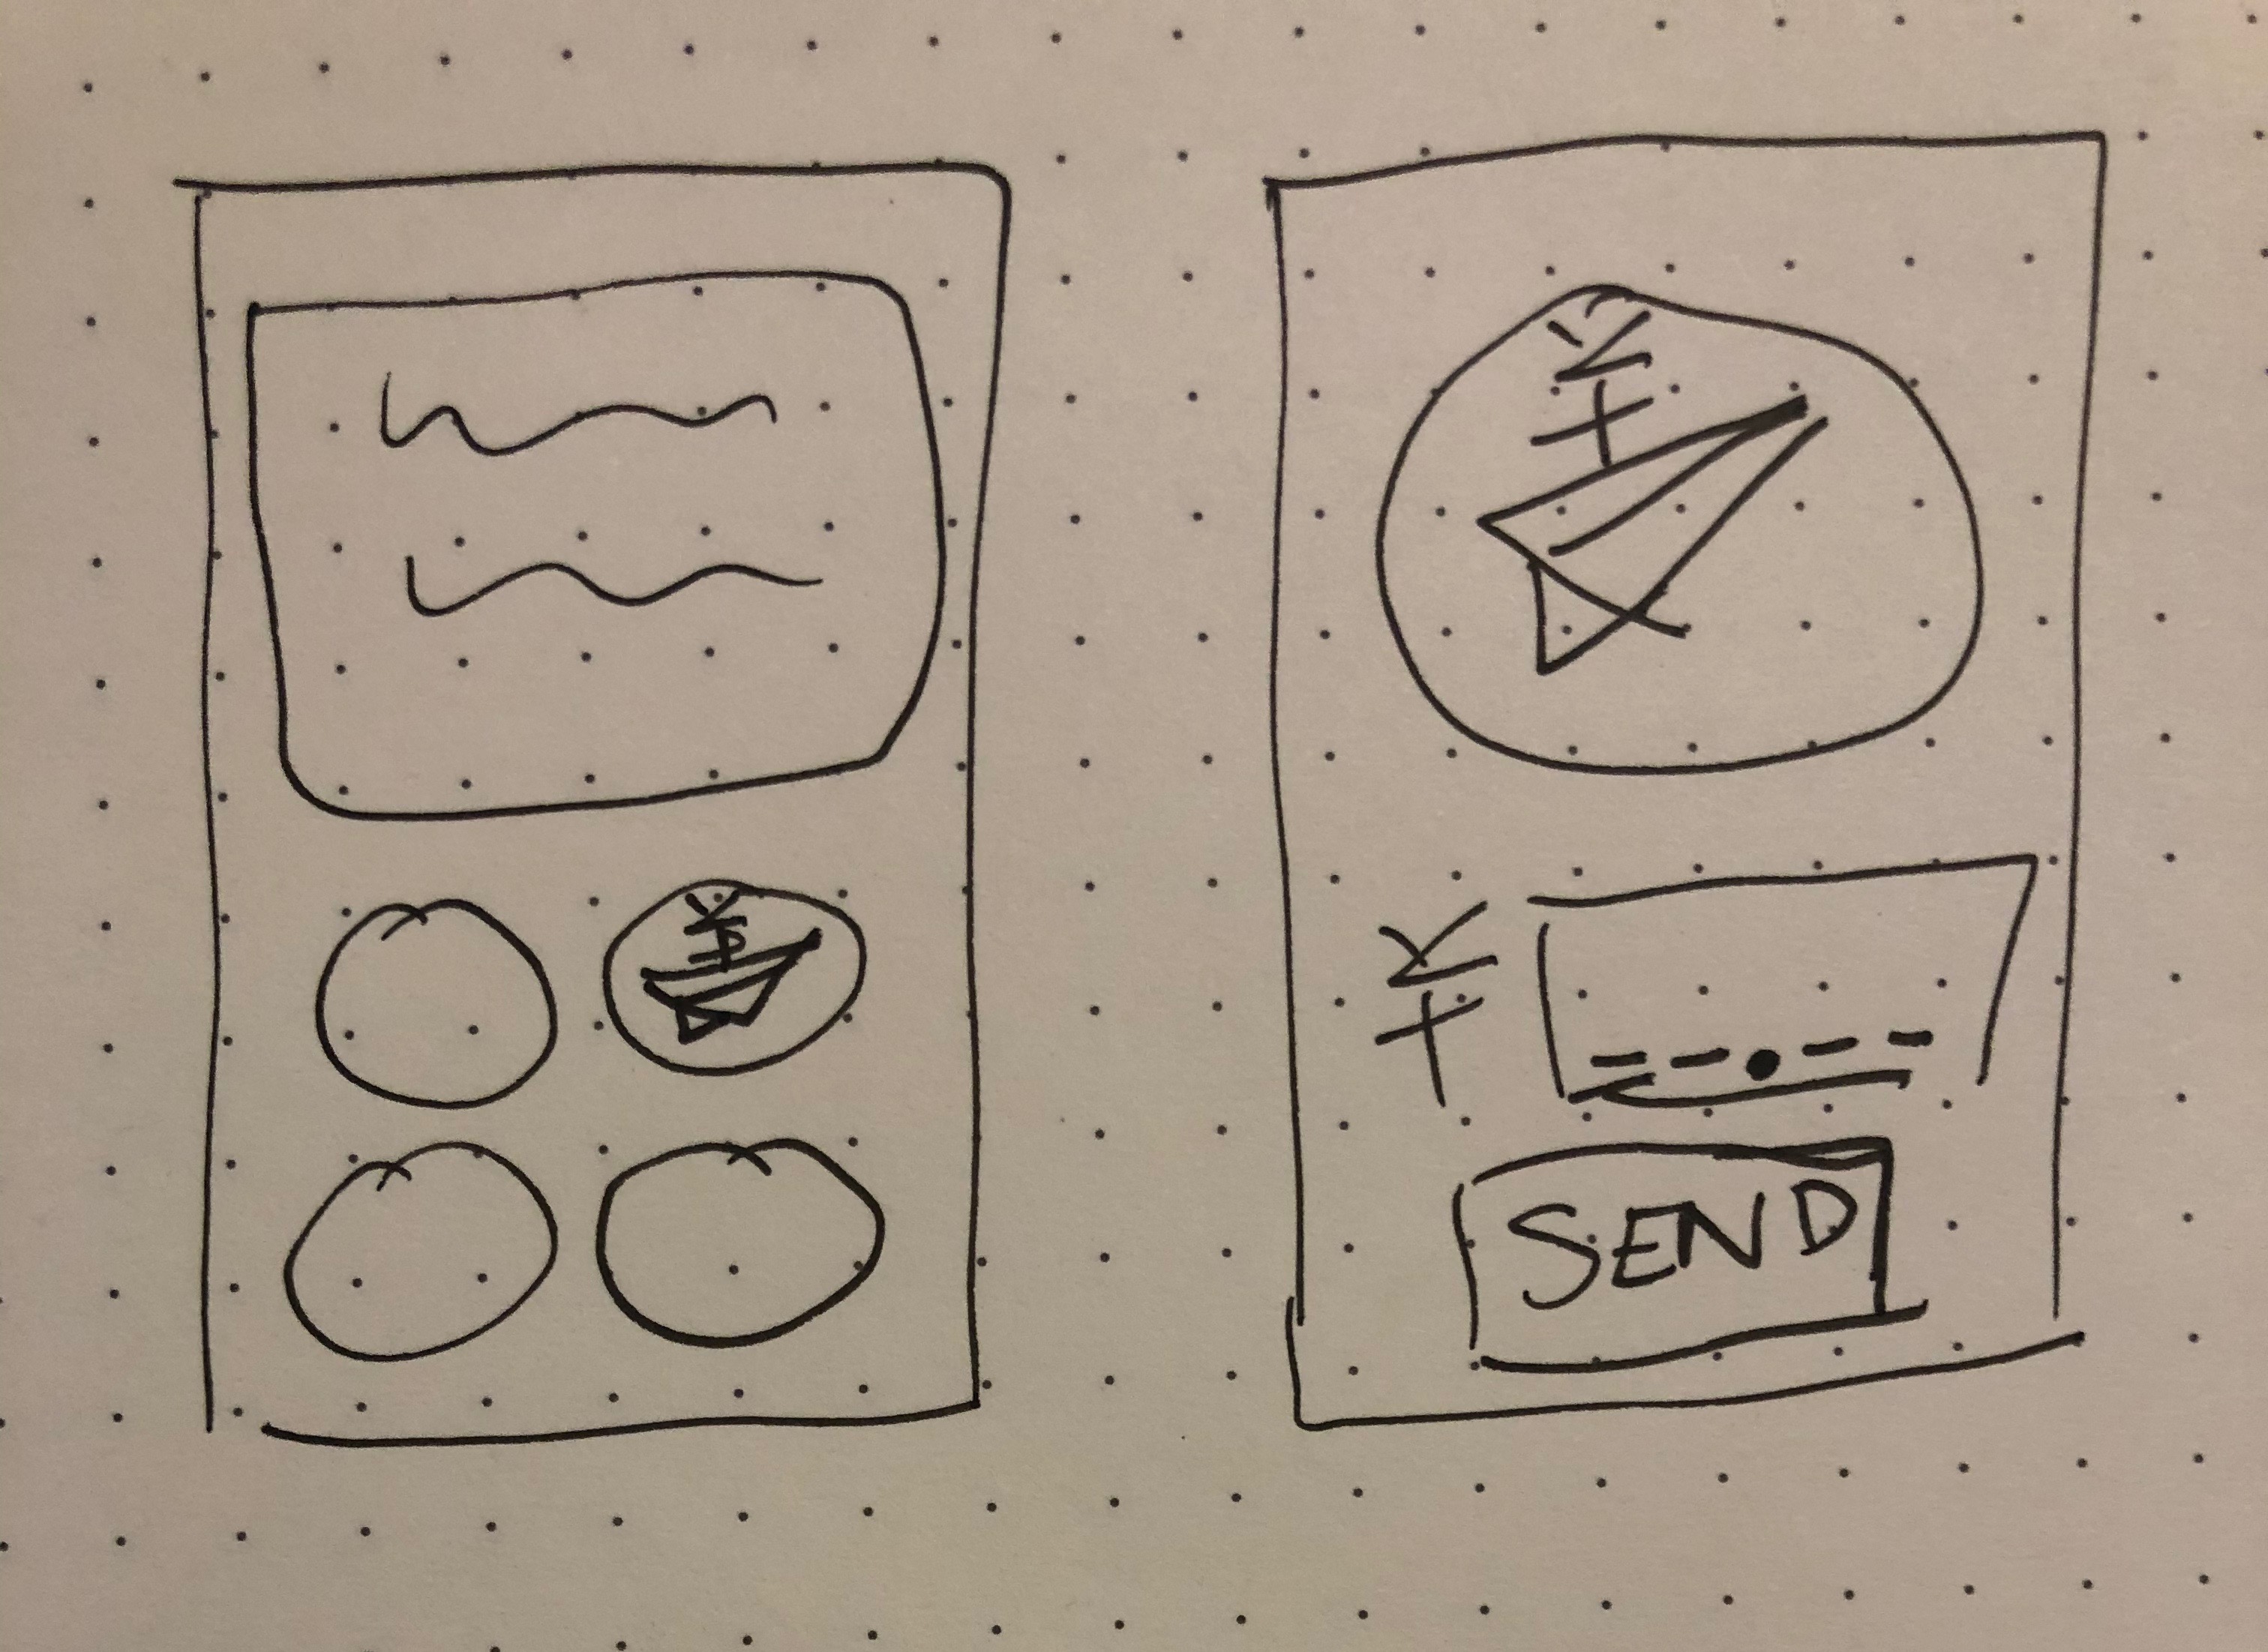 ¥
¥
¥ --.--
SEND